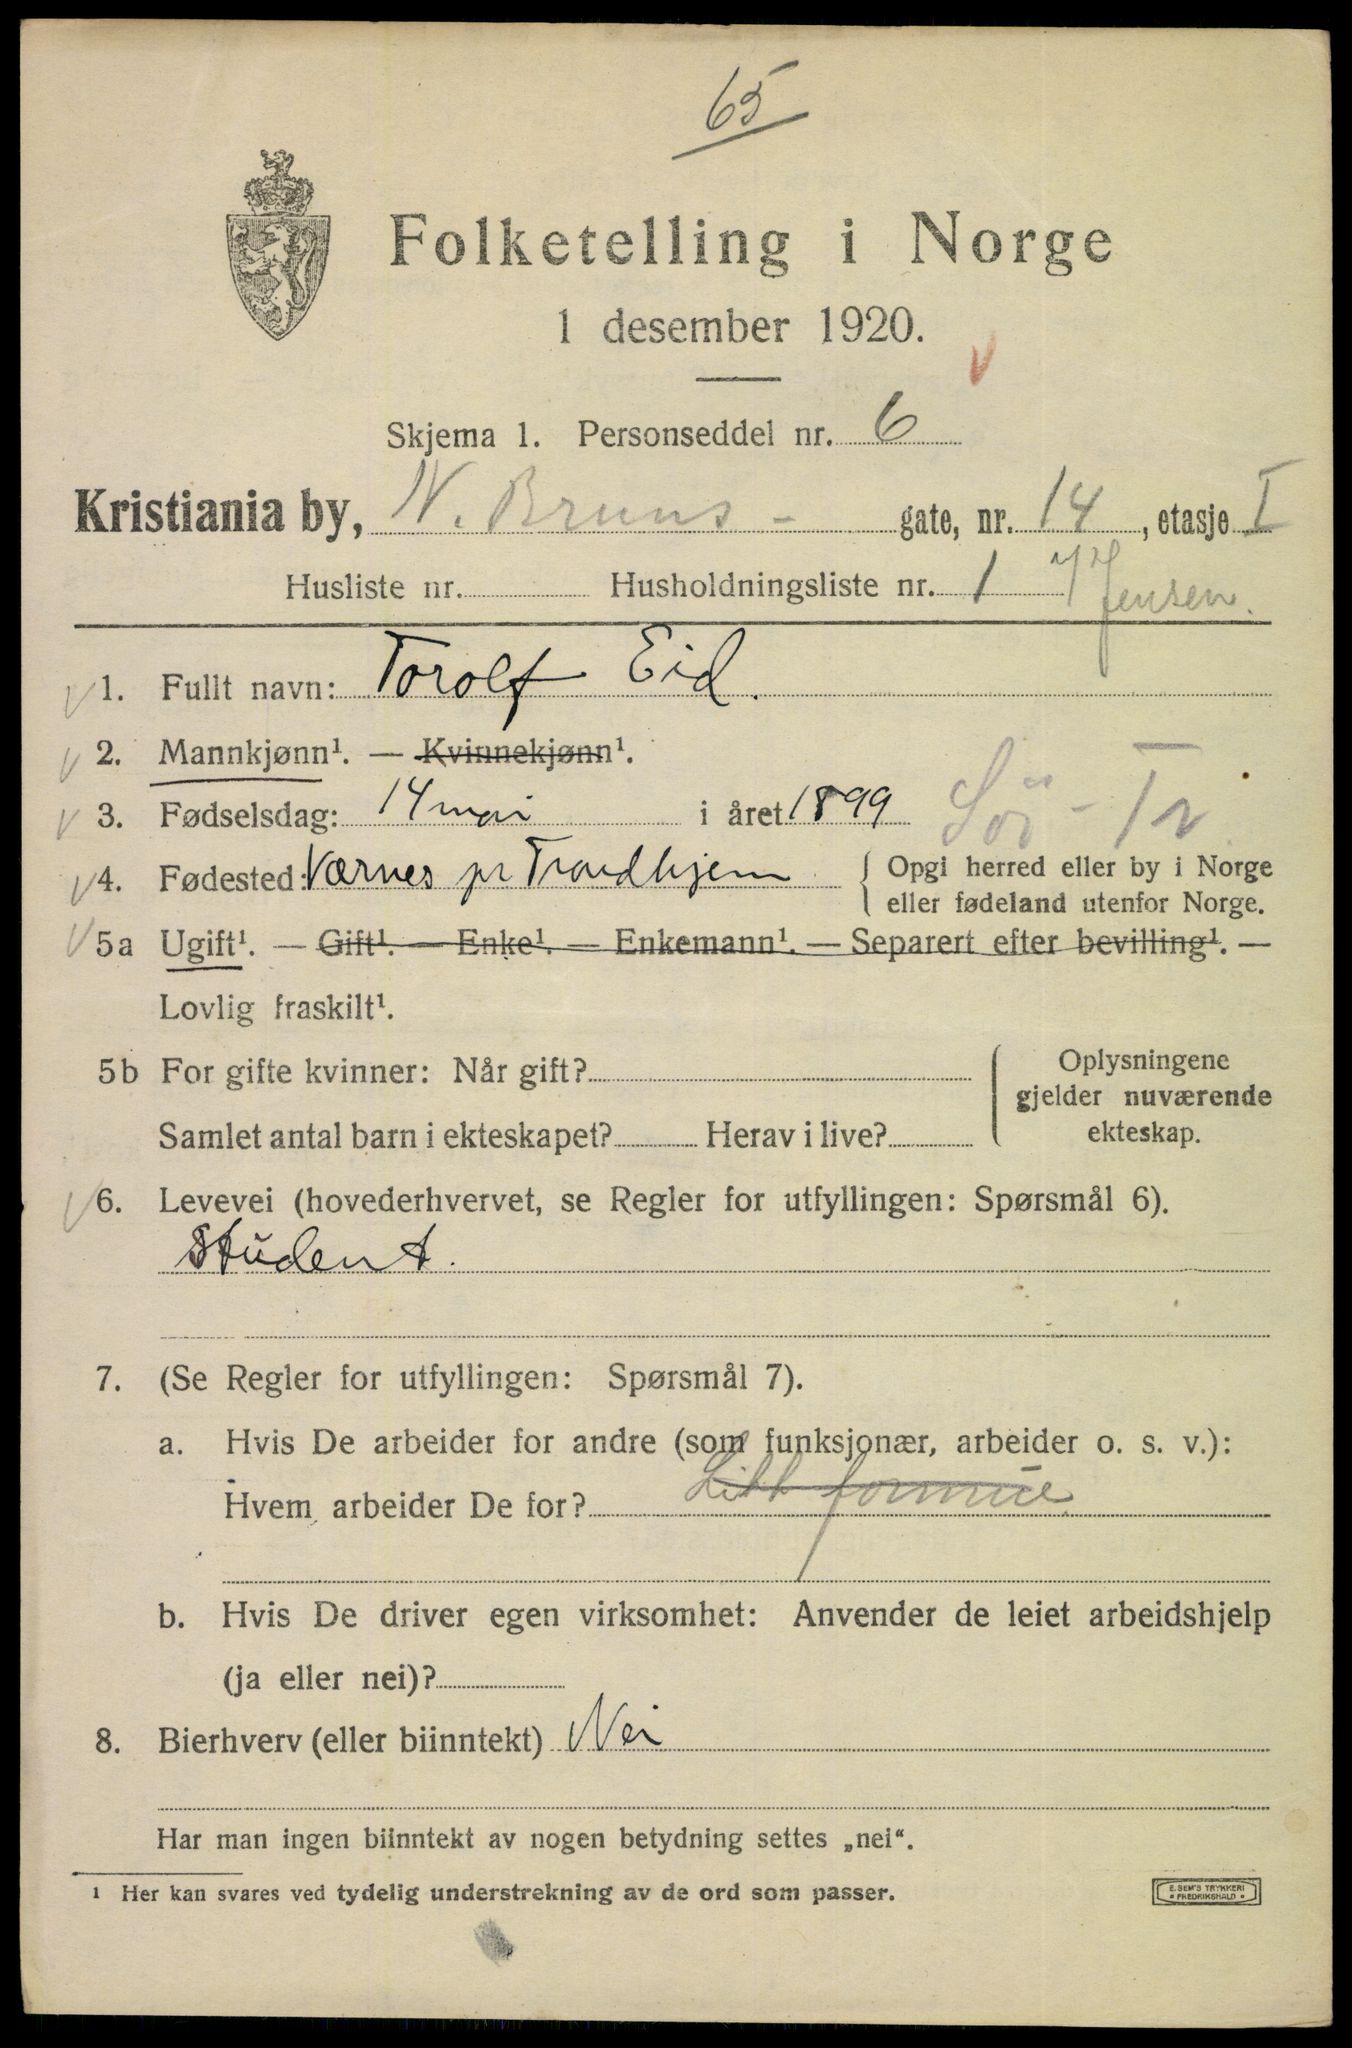 65
Folketelling i Norge
1 desember 1920.
Skjema 1. Personseddel nr. 6
Kristiania by, N. Bruns - gate, nr. 14, etasje I
Husliste nr. Husholdningsliste nr. 1
Jensen.
1. Fullt navn: Torolf Eid.
2. Mannkjønn¹. — Kvinnekjønn¹.
3. Fødselsdag: 14 mai i året 1899
Sör-Tr
4. Fødested: Værnes pr Trondhjem { Opgi herred eller by i Norge
eller fødeland utenfor Norge.
5a Ugift¹. — Gift¹. — Enke¹. — Enkemann¹. — Separert efter bevilling¹. —
Lovlig fraskilt¹.
5b For gifte kvinner: Når gift? { Oplysningene
gjelder nuværende
Samlet antal barn i ekteskapet? Herav i live? ekteskap.
6. Levevei (hovederhvervet, se Regler for utfyllingen: Spørsmål 6).
Student.
7. (Se Regler for utfyllingen: Spørsmål 7).
a. Hvis De arbeider for andre (som funksjonær, arbeider o. s. v.):
Hvem arbeider De for? Litt formue
b. Hvis De driver egen virksomhet: Anvender de leiet arbeidshjelp
(ja eller nei)?
8. Bierhverv (eller biinntekt) Nei
Har man ingen biinntekt av nogen betydning settes „nei“.
¹ Her kan svares ved tydelig understrekning av de ord som passer.
E. SEM'S TRYKKERI
FREDRIKSHALD